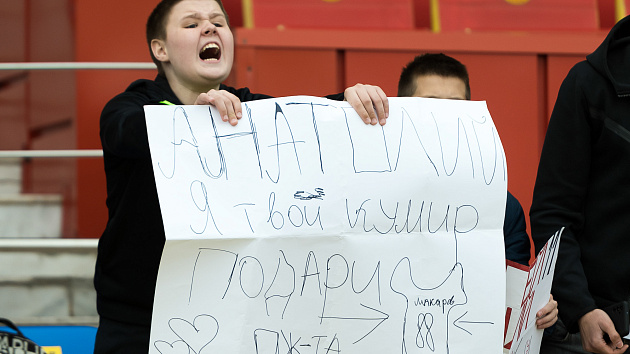 АНАТОЛИЙ
Я твой кумир
ПОДАРИ
макаров
ПЖ-ТА
88